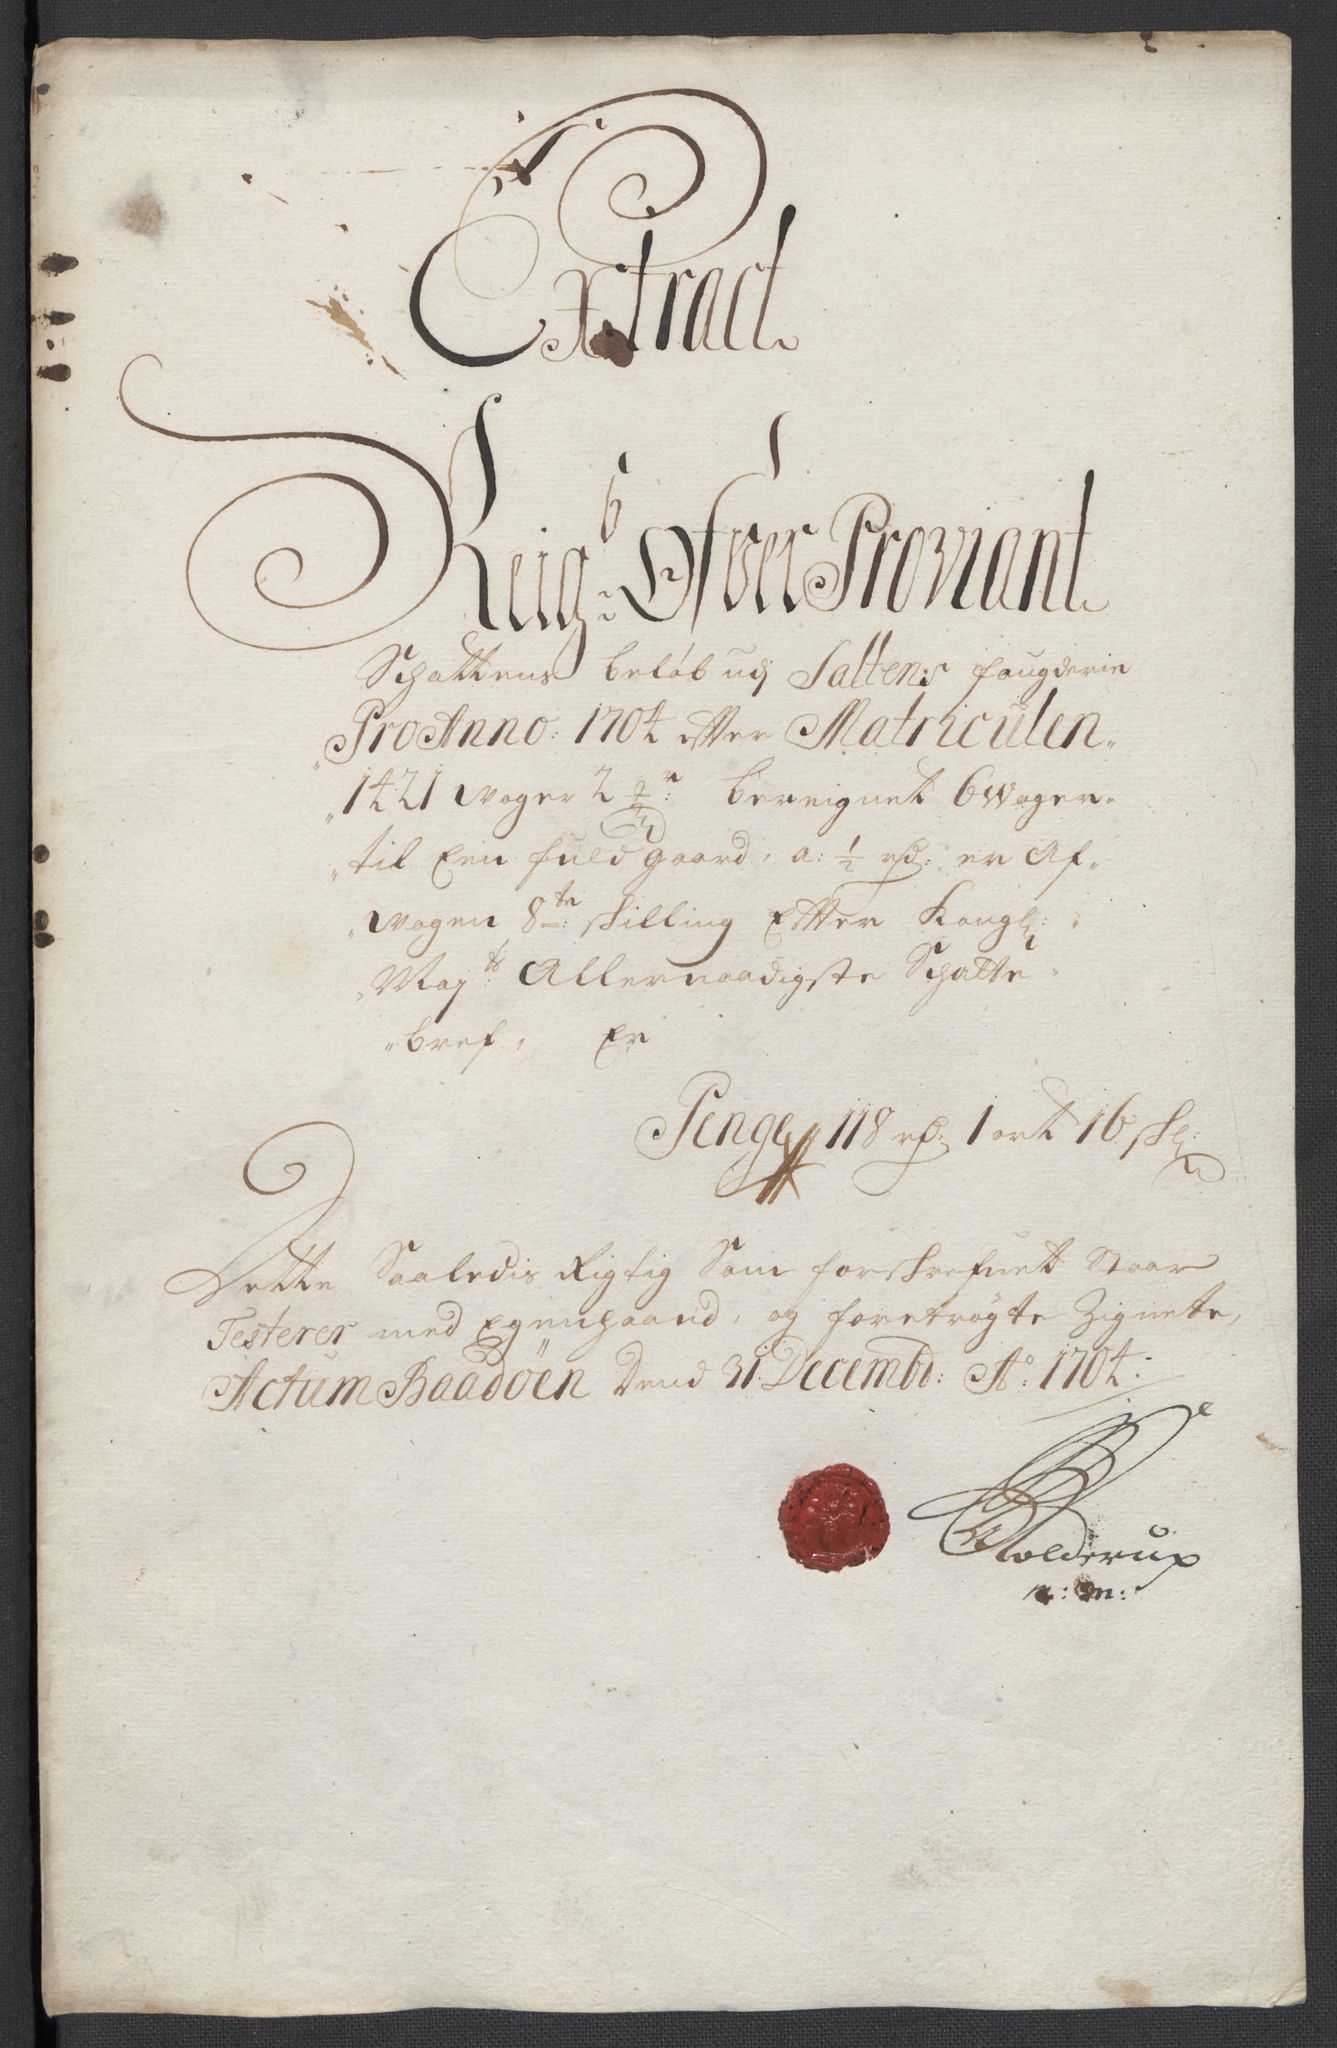 Extract
Reig: Ofver Proviant
Schattens beløb udj Saltens fougderie
Pro Anno: 1704 efter Matriculen
1421 woger 2 bereignet 6 woger
til Een fuld gaard, a: ½ rd: er Af
wogen 8te skilling Efter Kongl:
Maj:ts Allernaadigste Schatte
bref, Er
Penge 118 rd: 1 ort 16 sk
Dette Saaledis Rigtig Som forskrefuet Staar
Testerer med Egenhaand, og foretrøgte Zignete,
Actum Baadøen Dend 31. Decembr: Ao: 1704:
Holderup
m: